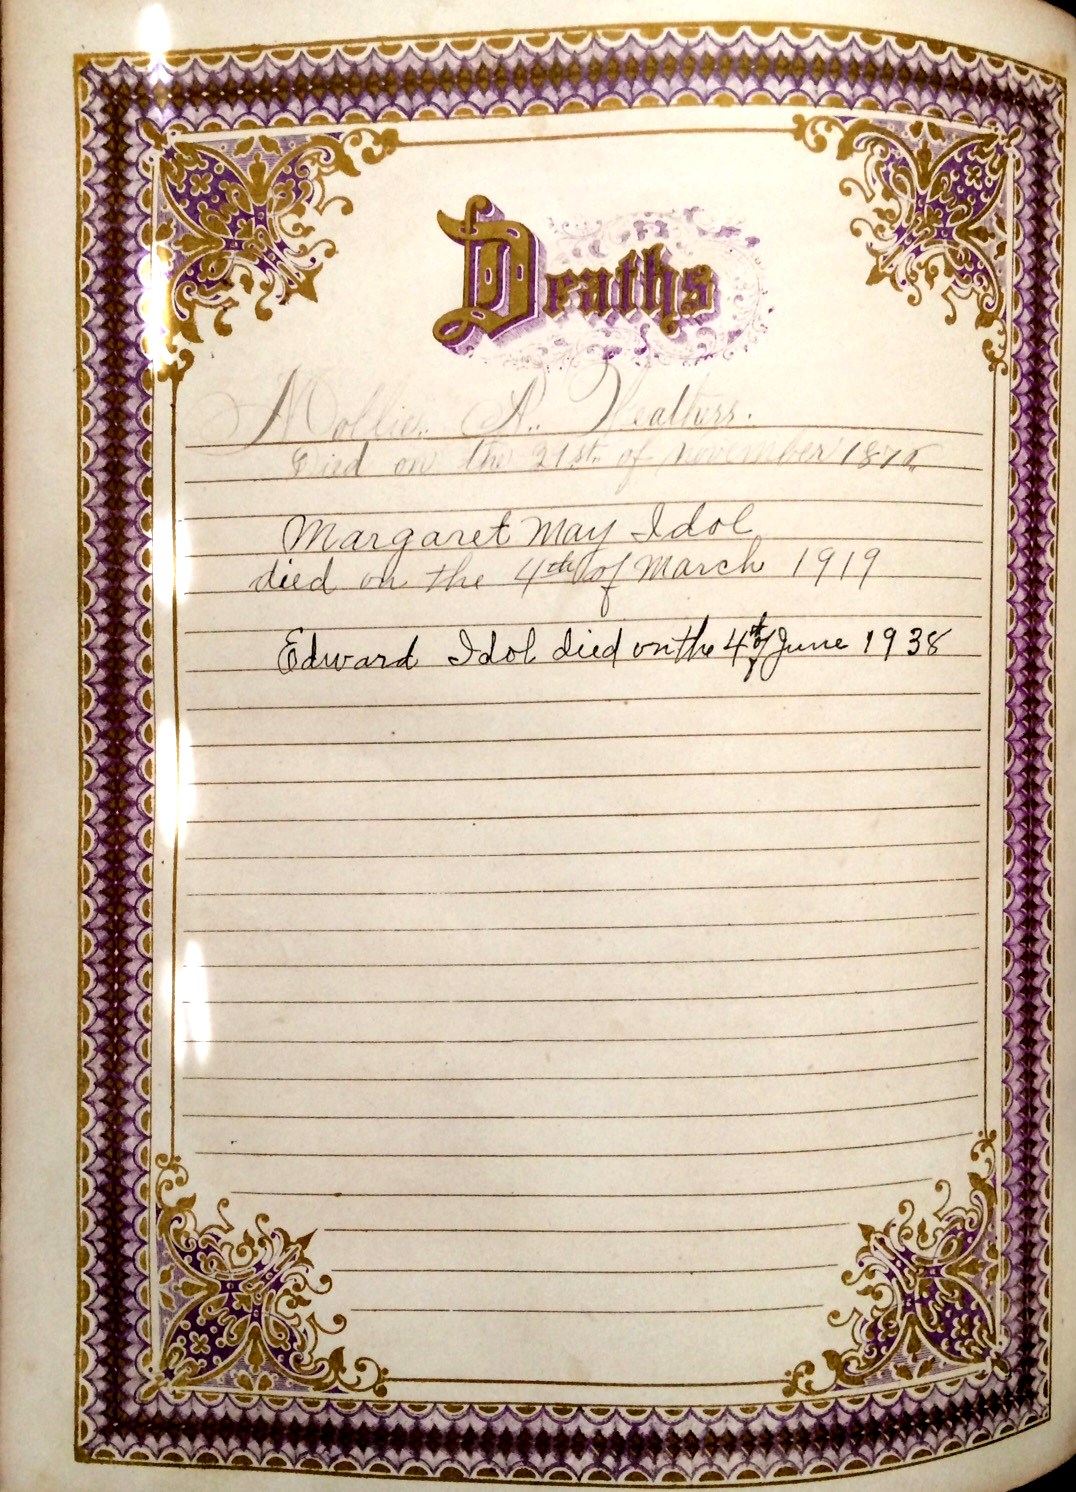 Deaths
Mollie. A. Weathers.
Died on the 21st. of november
Margaret May Idol
died on the 4th of March 1919
Edward Idol died on the 4th of June 1938